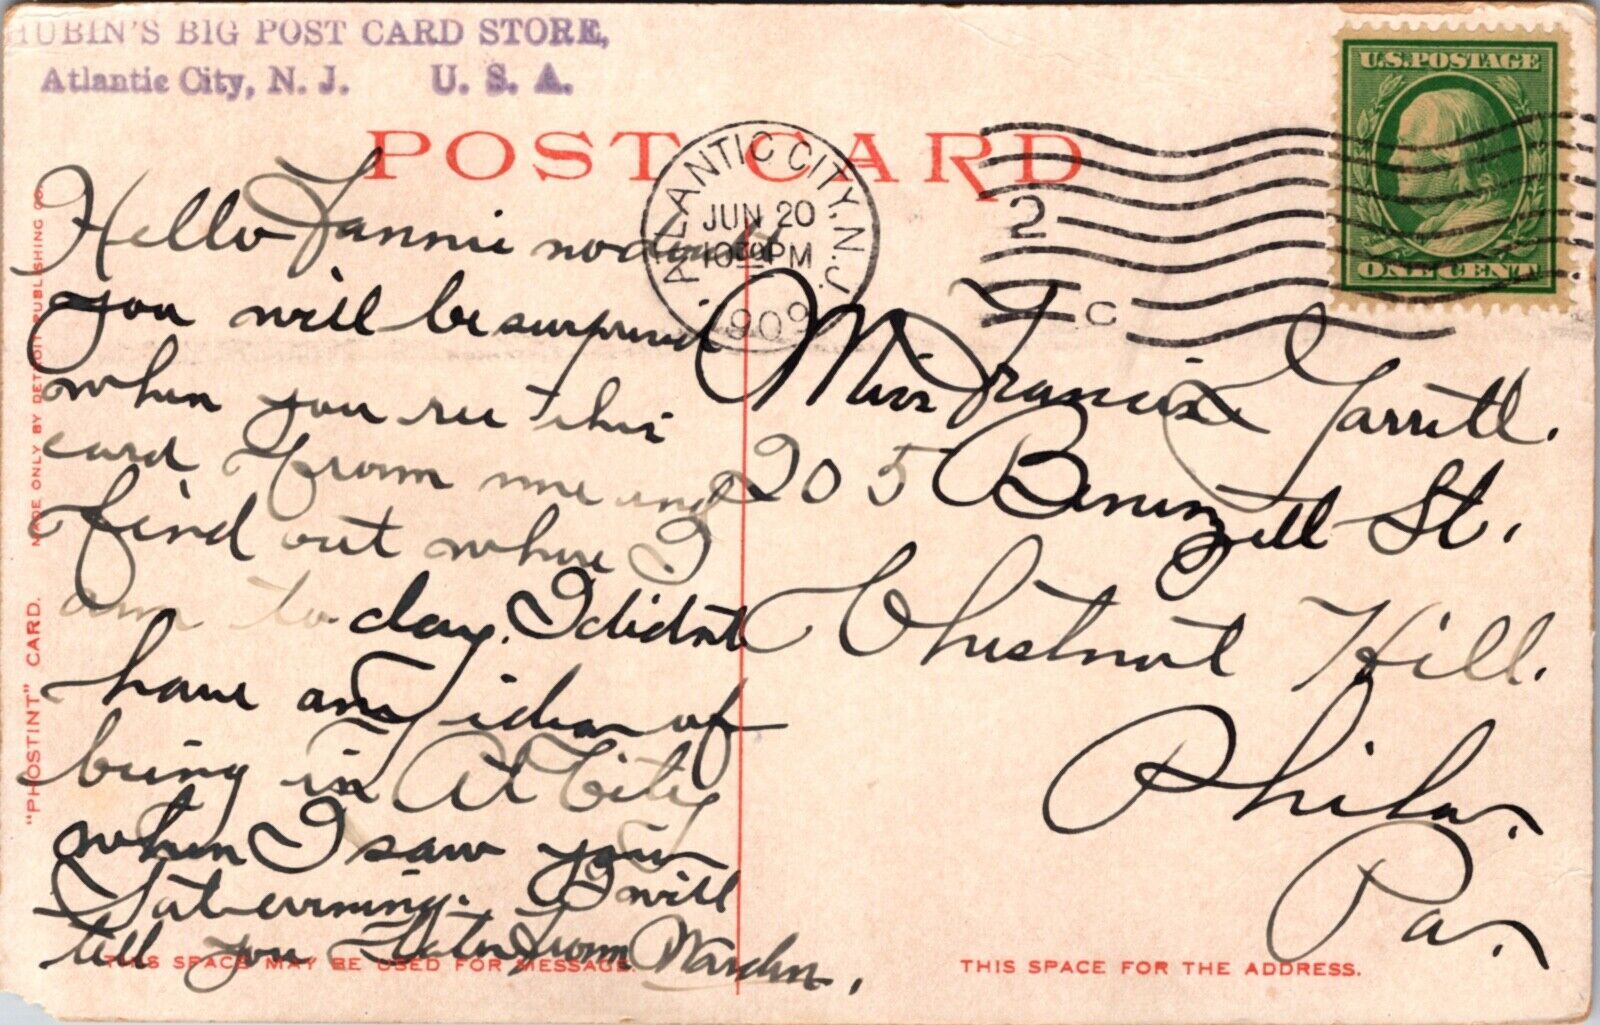 HUBIN'S BIG POST CARD STORE,
Atlantic City, N. J. U. S. A.
POST CARD
ATLANTIC CITY, N.J.
JUN 20
10 30 PM
1909
2
C
U.S. POSTAGE
ONE CENT
Hello Fannie no doubt
you will be surprised
when you see this
card from me and
find out where I
am to day. I didnt
have any idea of
being in At City
when I saw you
Sat evening. I will
tell you later from Warden,
Miss Francis Garrett.
205 St.
Chestnut Hill.
Phila.
Pa.
"PHOSTINT" CARD. MADE ONLY BY DETROIT PUBLISHING CO.
THIS SPACE MAY BE USED FOR MESSAGE.
THIS SPACE FOR THE ADDRESS.